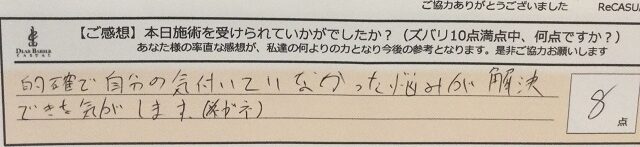 ご協力ありがとうございました ReCASUA
DEAR BARBER
CASUAL
【ご感想】本日施術を受けられていかがでしたか？（ズバリ10点満点中、何点ですか？）
あなた様の率直な感想が、私達の何よりの力となり今後の参考となります。是非ご協力お願いします
的確で自分の気付いていなかった悩みが解決
できた気がします。(メガネ)
8
点